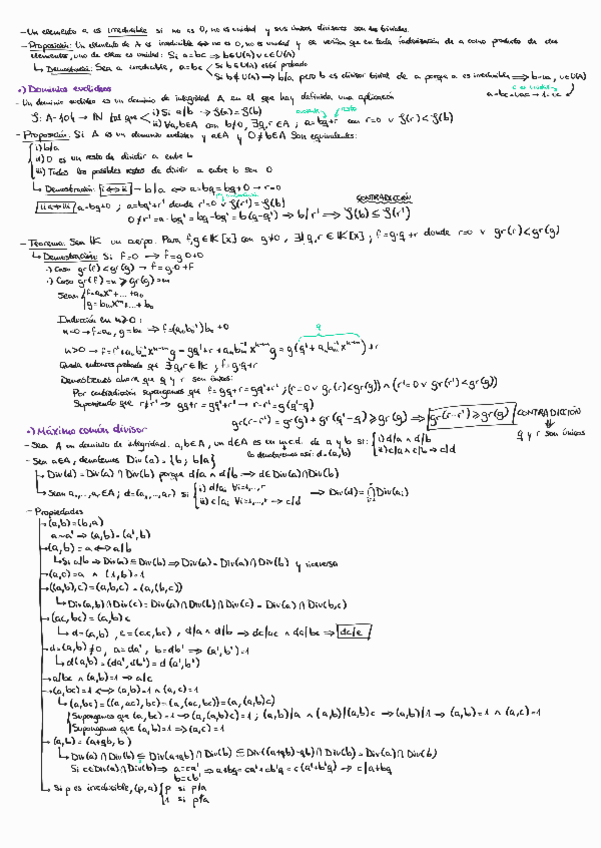 - Un elemento a es irreducible si no es 0, no es unidad y sus únicos divisores son los triviales.
- Proposición: Un elemento de A es irreducible ⟺ no es 0, no es unidad y se verifica que en toda factorización de a como producto de dos
elementos, uno de ellos es unidad: Si a=bc ⟹ b∈U(A) ∨ c∈U(A)
↳ Demostración: Sea a irreducible, a=bc < Si b∈U(A) está probado
Si b∉U(A) ⟹ b/a, pero b es divisor trivial de a porque a es irreducible ⟹ b~a, c∈U(A)
•) Dominios euclídeos
- Un dominio euclídeo es un dominio de integridad A en el que hay definida una aplicación
δ: A-{0} → ℕ tal que < i) Si a/b → δ(a) ≤ δ(b)
ii) ∀a,b∈A con b≠0, ∃q,r∈A ; a=bq+r con r=0 ∨ δ(r)<δ(b)
- Proposición: Si A es un dominio euclídeo y a∈A y 0≠b∈A son equivalentes:
i) b/a
ii) 0 es un resto de dividir a entre b
iii) Todos los posibles restos de dividir a entre b son 0
↳ Demostración: i⟺ii - b/a ⟺ a=bq=bq+0 → r=0
a=bq+0 ; a=bq'+r' donde r'=0 ∨ δ(r')<δ(b) CONTRADICCIÓN
0≠r'=a-bq'=bq-bq'=b(q-q') ⟹ b/r' ⟹ δ(b) ≤ δ(r')
- Teorema: Sea 𝕂 un cuerpo. Para f,g∈𝕂[x] con g≠0, ∃!q,r∈𝕂[x] ; f=g·q+r donde r=0 ∨ gr(r)<gr(g)
↳ Demostración: Si f=0 → f=g·0+0
·) Caso gr(f)<gr(g) → f=g·0+f
·) Caso gr(f)=n ≥ gr(g)=m
Sean { f=aₙxⁿ+...+a₀
g=bₘxᵐ+...+b₀
Inducción en n≥0:
n=0 → f=a₀, g=b₀ ⟹ f=(a₀b₀⁻¹)b₀+0
Queda entonces probado que ∃q,r∈𝕂 ; f=g·q+r
Demostremos ahora que q y r son únicos:
Por contradicción supongamos que f=gq+r=gq'+r' ; (r=0 ∨ gr(r)<gr(g)) ∧ (r'=0 ∨ gr(r')<gr(g))
Suponiendo que r≠r' → gq+r=gq'+r' → r-r'=g(q'-q)
gr(r-r')=gr(g)+gr(q'-q) ≥ gr(g) ⟹ gr(r-r') ≥ gr(g) CONTRADICCIÓN
q y r son únicos
•) Máximo común divisor
- Sea A un dominio de integridad. a,b∈A, un d∈A es un m.c.d. de a y b si: { i) d/a ∧ d/b
lo denotaremos así: d=(a,b) ii) c/a ∧ c/b → c/d
- Sea a∈A, denotemos Div(a)={b ; b/a}
↳ Div(d)=Div(a)∩Div(b) porque d/a ∧ d/b → d∈Div(a)∩Div(b)
↳ Sean a₁,...,aᵣ∈A ; d=(a₁,...,aᵣ) si { i) d/aᵢ ∀i=1,...,r
ii) c/aᵢ ∀i=1,...,r → c/d ⟹ Div(d)=⋂Div(aᵢ)
- Propiedades
→ (a,b)=(b,a)
a~a' ⟹ (a,b)=(a',b)
→ (a,b)=a ⟺ a/b
↳ Si a/b ⟹ Div(a)⊆Div(b) ⟹ Div(a)=Div(a)∩Div(b) y viceversa
→ (a,0)=a ∧ (1,b)=1
→ ((a,b),c)=(a,b,c)=(a,(b,c))
↳ Div(a,b)∩Div(c)=Div(a)∩Div(b)∩Div(c)=Div(a)∩Div(b,c)
→ (ac,bc)=(a,b)c
↳ d=(a,b), e=(ac,bc), d/a ∧ d/b ⟹ dc/ac ∧ dc/bc ⟹ dc/e
→ d=(a,b)≠0, a=da', b=db' ⟹ (a',b')=1
↳ d(a,b)=(da',db')=d(a',b')
→ a/bc ∧ (a,b)=1 → a/c
→ (a,bc)=1 ⟺ (a,b)=1 ∧ (a,c)=1
↳ (a,bc)=((a,ac),bc)=(a,(ac,bc))=(a,(a,b)c)
Supongamos que (a,bc)=1 → (a,(a,b)c)=1 ; (a,b)/a ∧ (a,b)/(a,b)c → (a,b)/1 → (a,b)=1 ∧ (a,c)=1
Supongamos que (a,b)=1 ⟹ (a,c)=1
→ (a,b)=(a+qb,b)
↳ Div(a)∩Div(b)⊆Div(a+qb)∩Div(b)⊆Div((a+qb)-qb)∩Div(b)=Div(a)∩Div(b)
Si c∈Div(a)∩Div(b) ⟹ a=ca' ⟹ a+bq=ca'+cb'q=c(a'+b'q) → c/a+bq
b=cb'
→ Si p es irreducible, (p,a) { p si p/a
1 si p∤a